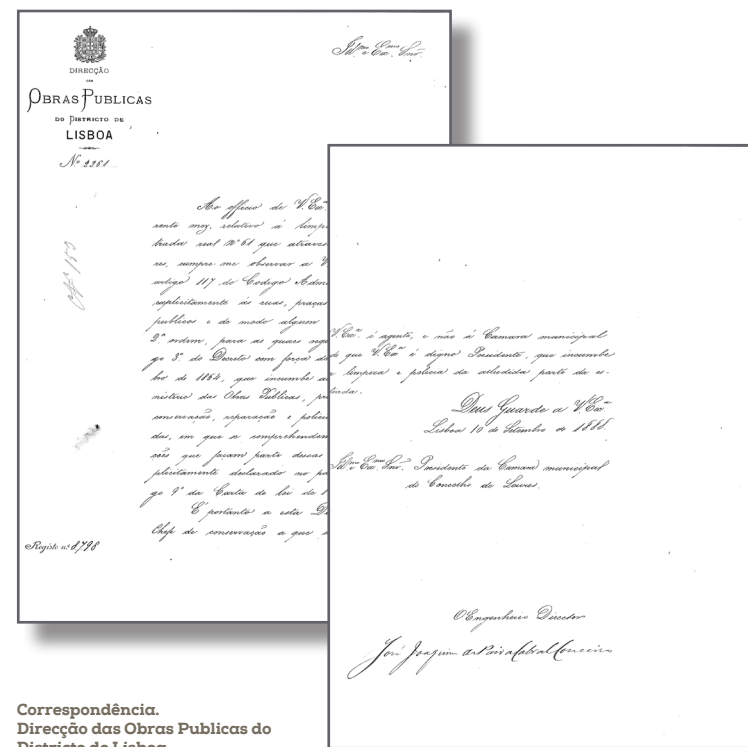 DIRECÇÃO
DAS
OBRAS PUBLICAS
DO DISTRICTO DE
LISBOA
Nº 2261
Illmo e Exmo Snr.
Off 153
Ao officio de V. Exª
rente mez, relativo á limpe
trada real Nº 61 que atraves
res, cumpre-me observar a V.
artigo 117 do Codigo Admi
explicitamente ás ruas, praças
publicos e de modo algum
2ª ordem, para as quaes
go 3º do Decreto com força de
bro de 1864, que incumbe ao
nisterio das Obras Publicas,
conservação, reparação e policia
das, em que se comprehendem
ções que façam parte dessas
plicitamente declarado no
go 9º da Carta de lei de 1
É portanto a esta Di
Chefe de conservação a que
Registo nº 8798
V. Exª é agente, e não á Camara municipal
de que V. Exª é digno Presidente, que incumbe
a limpeza e policia da alludida parte da es-
trada.
Deus Guarde a V. Exª
Lisboa 10 de Setembro de 1888.
Illmo e Exmo Snr. Presidente da Camara municipal
do Concelho de Loures.
O Engenheiro Director
José Joaquim de Paiva Cabral Couceiro
Correspondência.
Direcção das Obras Publicas do
Districto de Lisboa